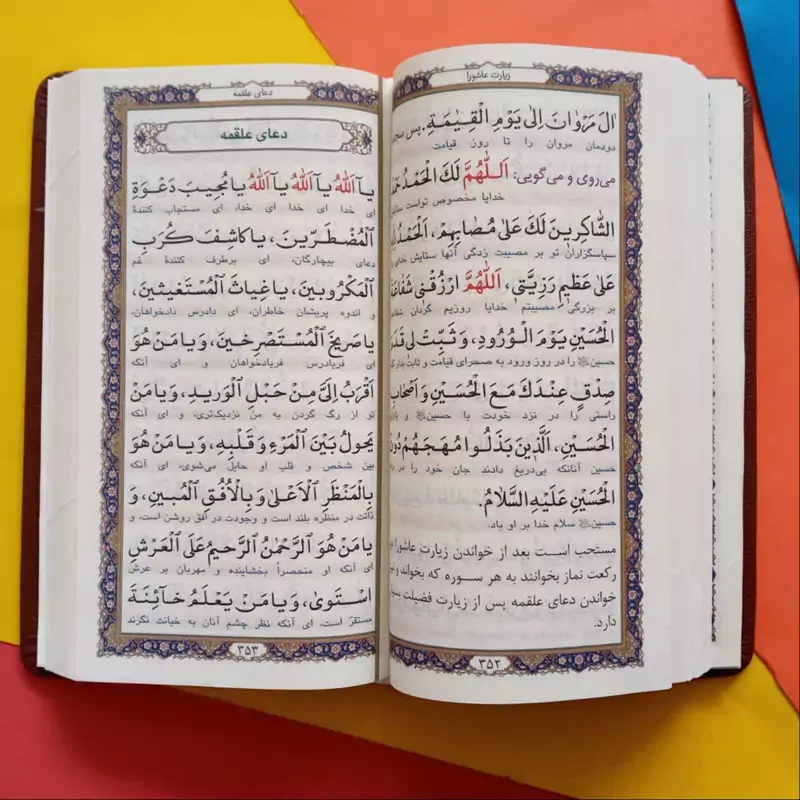 زیارت عاشورا
اٰلَ مَرْوٰانَ اِلىٰ يَوْمِ الْقِيٰمَةِ. پس سجده
دودمان مروان را تا روز قیامت
می‌روی و می‌گویی: اَللّٰهُمَّ لَكَ الْحَمْدُ
خدایا مخصوص توست ستایش
الشّٰاكِرينَ لَكَ عَلىٰ مُصٰابِهِمْ، اَلْحَمْدُ لِلّٰهِ
سپاسگزاران تو بر مصیبت زدگی آنها ستایش خدای
عَلىٰ عَظيمِ رَزِيَّتي، اَللّٰهُمَّ ارْزُقْني شَفٰاعَةَ
بر بزرگی مصیبتم خدایا روزیم گردان
الْحُسَيْنِ يَوْمَ الْوُرُودِ، وَ ثَبِّتْ لي قَدَمَ
حسین را در روز ورود به صحرای قیامت و ثابت بدار
صِدْقٍ عِنْدَكَ مَعَ الْحُسَيْنِ وَ اَصْحٰابِ
راستی را در نزد خودت با حسین و
الْحُسَيْنِ، اَلَّذينَ بَذَلُوا مُهَجَهُمْ دُونَ
حسین آنانکه بی‌دریغ دادند جان خود را در
الْحُسَيْنِ عَلَيْهِ السَّلٰامُ.
حسین سلام خدا بر او باد.
مستحب است بعد از خواندن زیارت عاشورا
رکعت نماز بخوانند به هر سوره که بخواند و
خواندن دعای علقمه پس از زیارت فضیلت
دارد.
۳۵۲
دعای علقمه
دعای علقمه
يٰا اَللّٰهُ يٰا اَللّٰهُ يٰا اَللّٰهُ يٰا مُجيبَ دَعْوَةِ
ای خدا ای خدا ای خدا، ای مستجاب کنندهٔ
الْمُضْطَرّينَ، يٰا كٰاشِفَ كُرَبِ
دعای بیچارگان، ای برطرف کنندهٔ غم
الْمَكْرُوبينَ، يٰا غِيٰاثَ الْمُسْتَغيثينَ،
و اندوه پریشان خاطران، ای دادرس دادخواهان،
يٰا صَريخَ الْمُسْتَصْرِخينَ، وَ يٰا مَنْ هُوَ
ای فریادرس فریادخواهان و ای آنکه
اَقْرَبُ اِلَيَّ مِنْ حَبْلِ الْوَريدِ، وَ يٰا مَنْ
تو از رگ گردن به من نزدیک‌تری، و ای آنکه
يَحُولُ بَيْنَ الْمَرْءِ وَ قَلْبِهِ، وَ يٰا مَنْ هُوَ
بین شخص و قلب او حایل می‌شوی، ای آنکه
بِالْمَنْظَرِ الْاَعْلىٰ وَ بِالْاُفُقِ الْمُبينِ، وَ
ذاتت در منظره بلند است و وجودت در افق روشن است، و
يٰا مَنْ هُوَ الرَّحْمٰنُ الرَّحيمُ عَلَى الْعَرْشِ
ای آنکه او منحصراً بخشاینده و مهربان بر عرش
اسْتَوىٰ، وَ يٰا مَنْ يَعْلَمُ خٰائِنَةَ
مستقرّ است، ای آنکه نظر چشم آنان به خیانت نگرند
۳۵۳